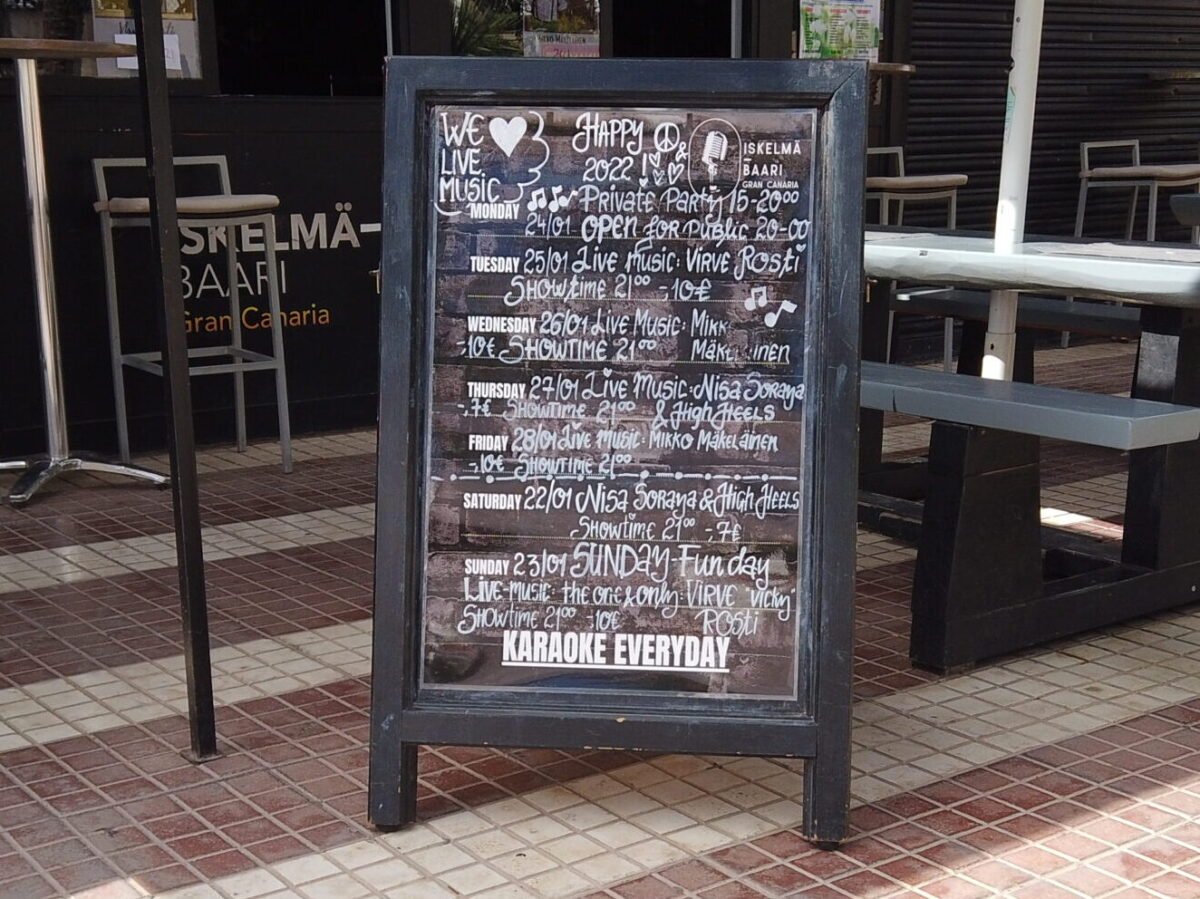 WE
LIVE
MUSIC
HAPPY
2022 ! &
ISKELMÄ
BAARI
GRAN CANARIA
MONDAY Private Party 15-20⁰⁰
24/01 OPEN for Public 20-00
TUESDAY 25/01 Live Music: VIRVE Rosti
Showtime 21⁰⁰ -,10€
WEDNESDAY 26/01 Live Music: Mikk
-,10€ SHOWTIME 21⁰⁰ Mäkl inen
THURSDAY 27/01 Live Music: Nisa Soraya
-,7€ SHOWTIME 21⁰⁰ & High HEELS
FRIDAY 28/01 Live Music: Mikko Mäkeläinen
-,10€ SHOWTIME 21⁰⁰
SATURDAY 22/01 Nisa Soraya & High HEELS
Showtime 21⁰⁰ -,7€
SUNDAY 23/01 SUNDAY-Funday
Live-music: the one & only: VIRVE "Vicky"
Showtime 21⁰⁰ -,10€ ROSti
KARAOKE EVERYDAY
ISKELMÄ-
BAARI
Gran Canaria